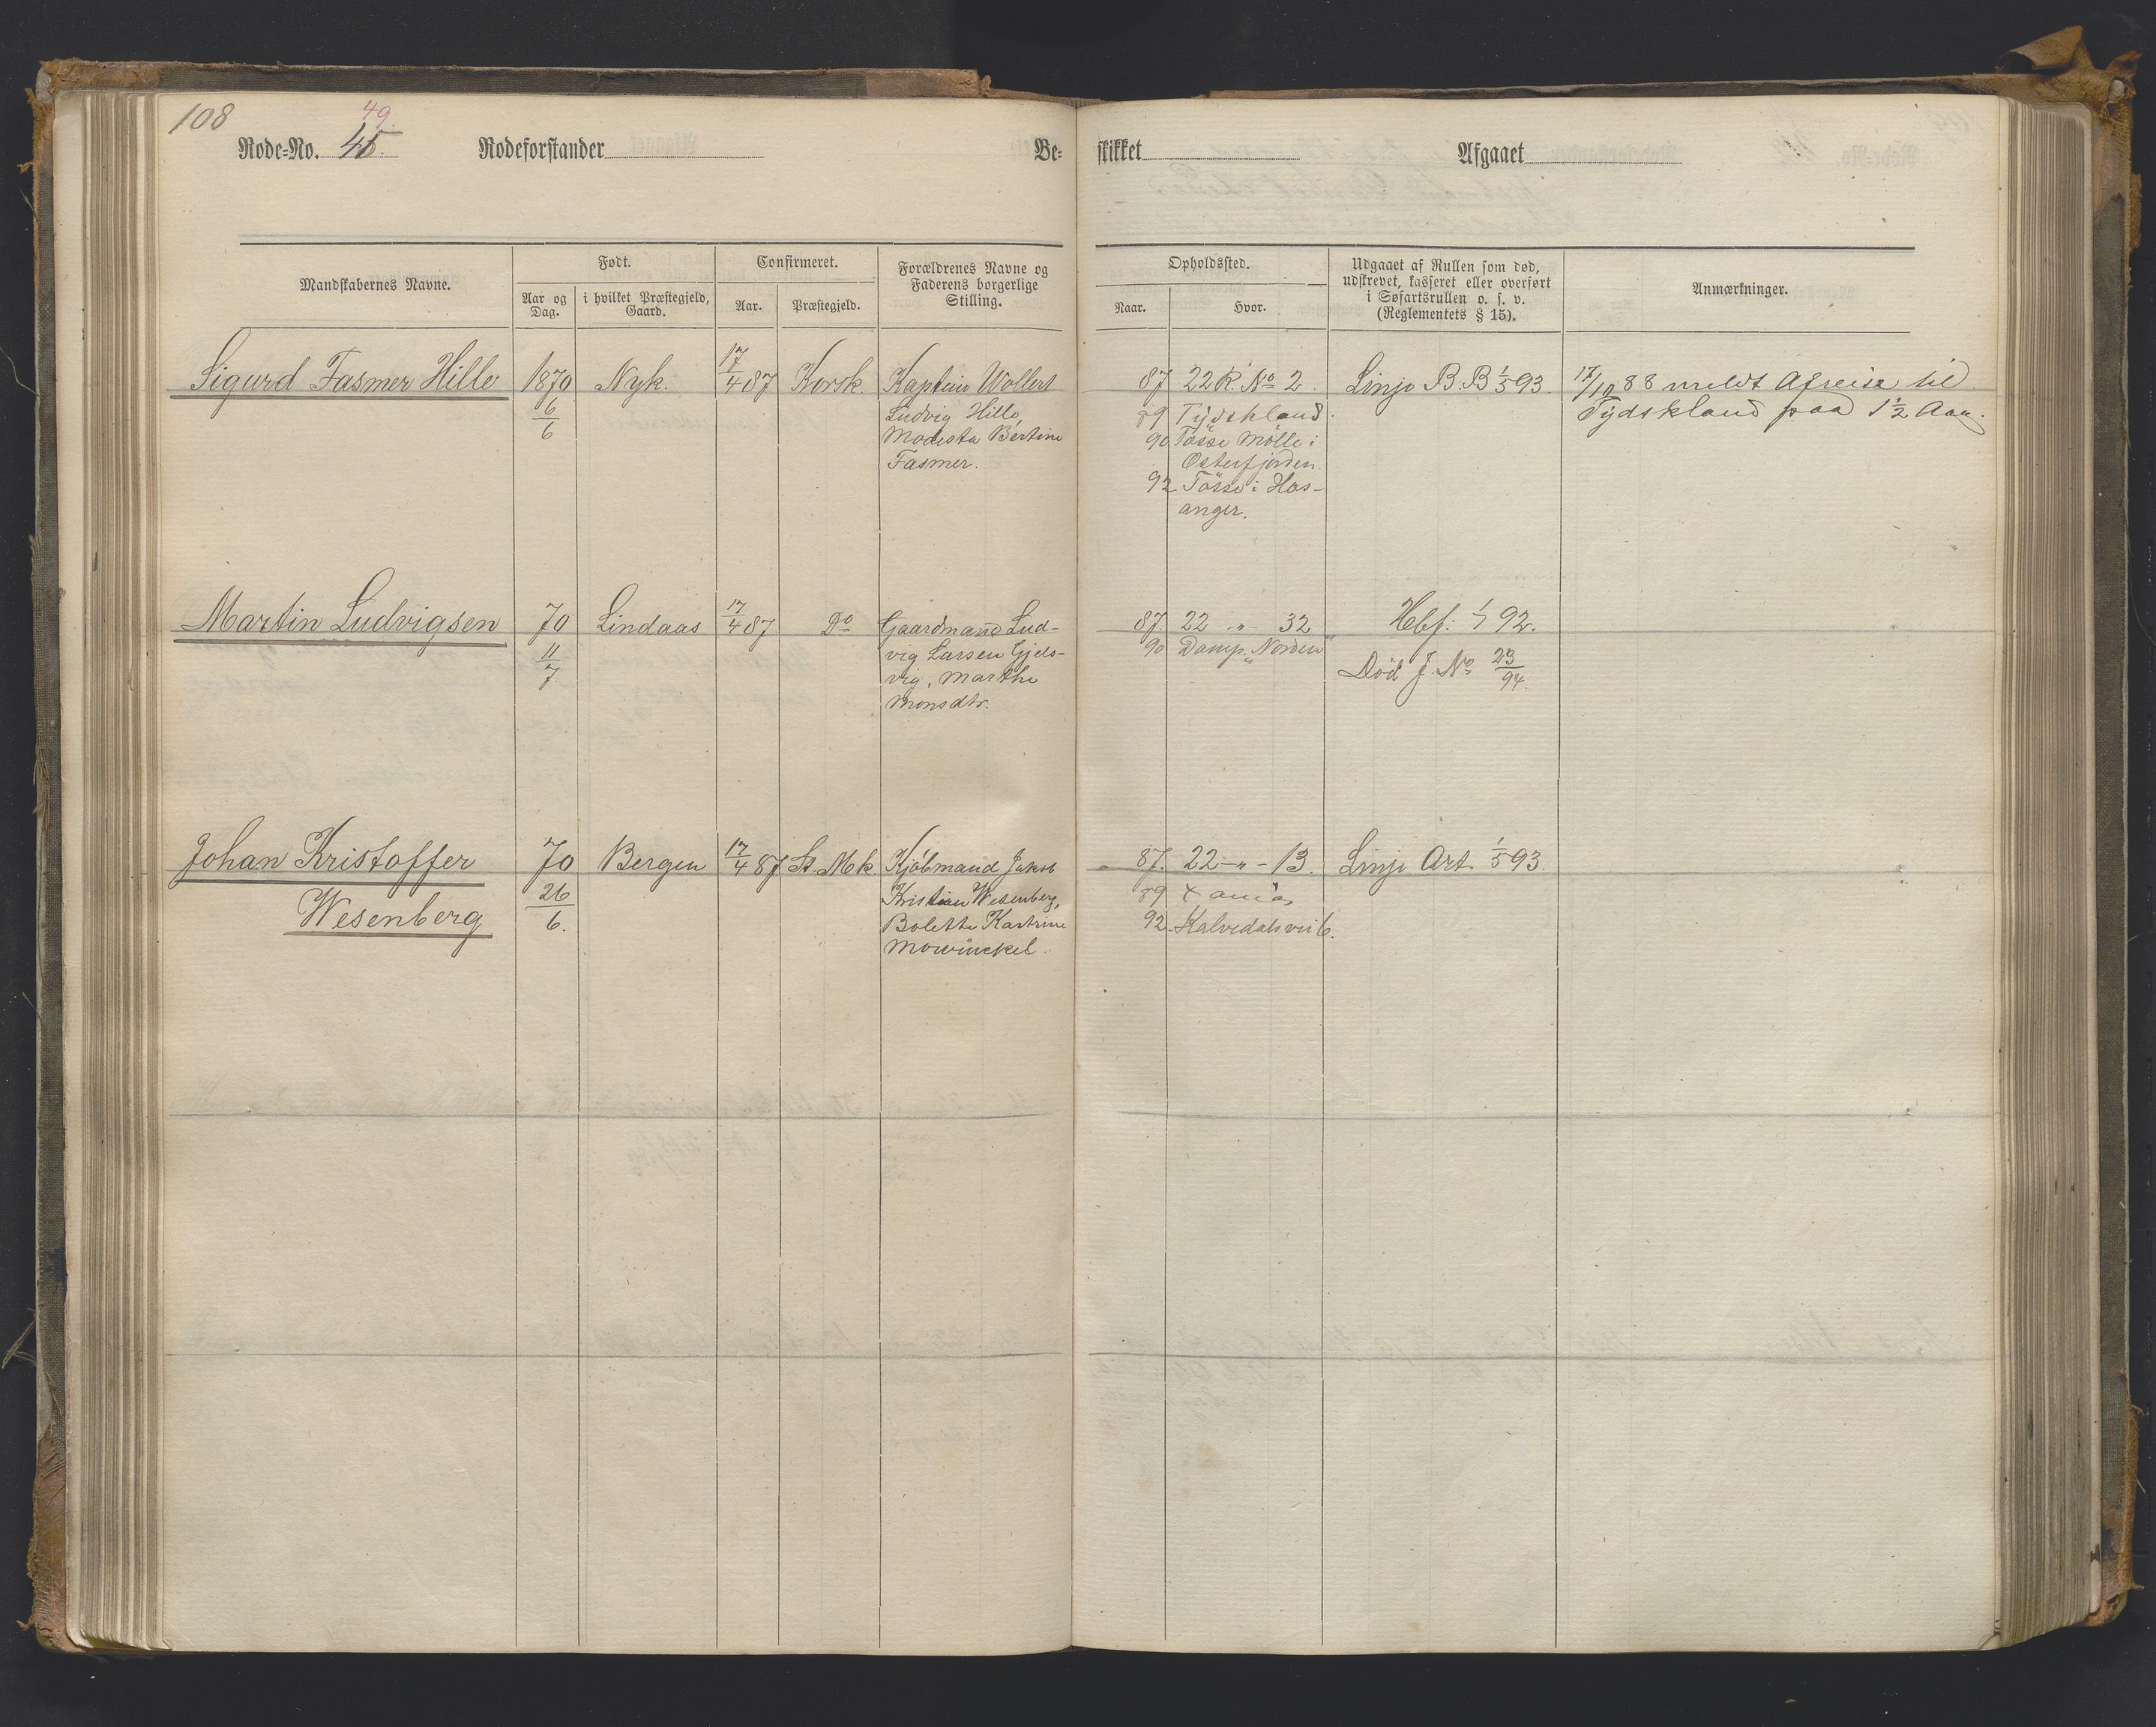 108
49.
Rode=No. 45. Rodeforstander Be= skikket Afgaaet
Mandskabernes Navne. Født. Confirmeret. Forældrenes Navne og Faderens borgerlige Stilling. Opholdssted. Udgaaet af Rullen som død, udskrevet, kasseret eller overført i Søfartsrullen o. s. v. (Reglementets § 15). Anmærkninger.
Aar og Dag. i hvilket Præstegjeld, Gaard. Aar. Præstegjeld. Naar. Hvor.
Sigurd Fasmer Hille 1870 Nyk. 17/4 87 Korsk. Kaptein Wollert 87 22 R. No 2. Linje B.B 1/5 93. 17/10 88 meldt Afreise til
6/6 Ludvig Hille, 89 Tydskland. Tydskland paa 1 1/2 Aar.
Modesta Bertine 90 Tösse Mölle i
Fasmer. Osterfjorden.
92 Tösse i Hos-
anger.
Martin Ludvigsen 70 Lindaas 17/4 87 Do Gaardmand Lud- 87 22 -"- 32 Hbf: 1/7 92.
11/7 vig Larsen Gjels- 90 Damp. "Norden" Död J. No 23/94.
vig, Marthe
Monsdtr.
Johan Kristoffer 70 Bergen 17/4 87 St. Mk Kjöbmand Jakob 87. 22 -"- 13. Linje Art. 1/5 93.
26/6. Kristian Wesenberg, 89
Wesenberg Bolette Kartrine 92. Kalvedalsvei 6.
Mowinckel.